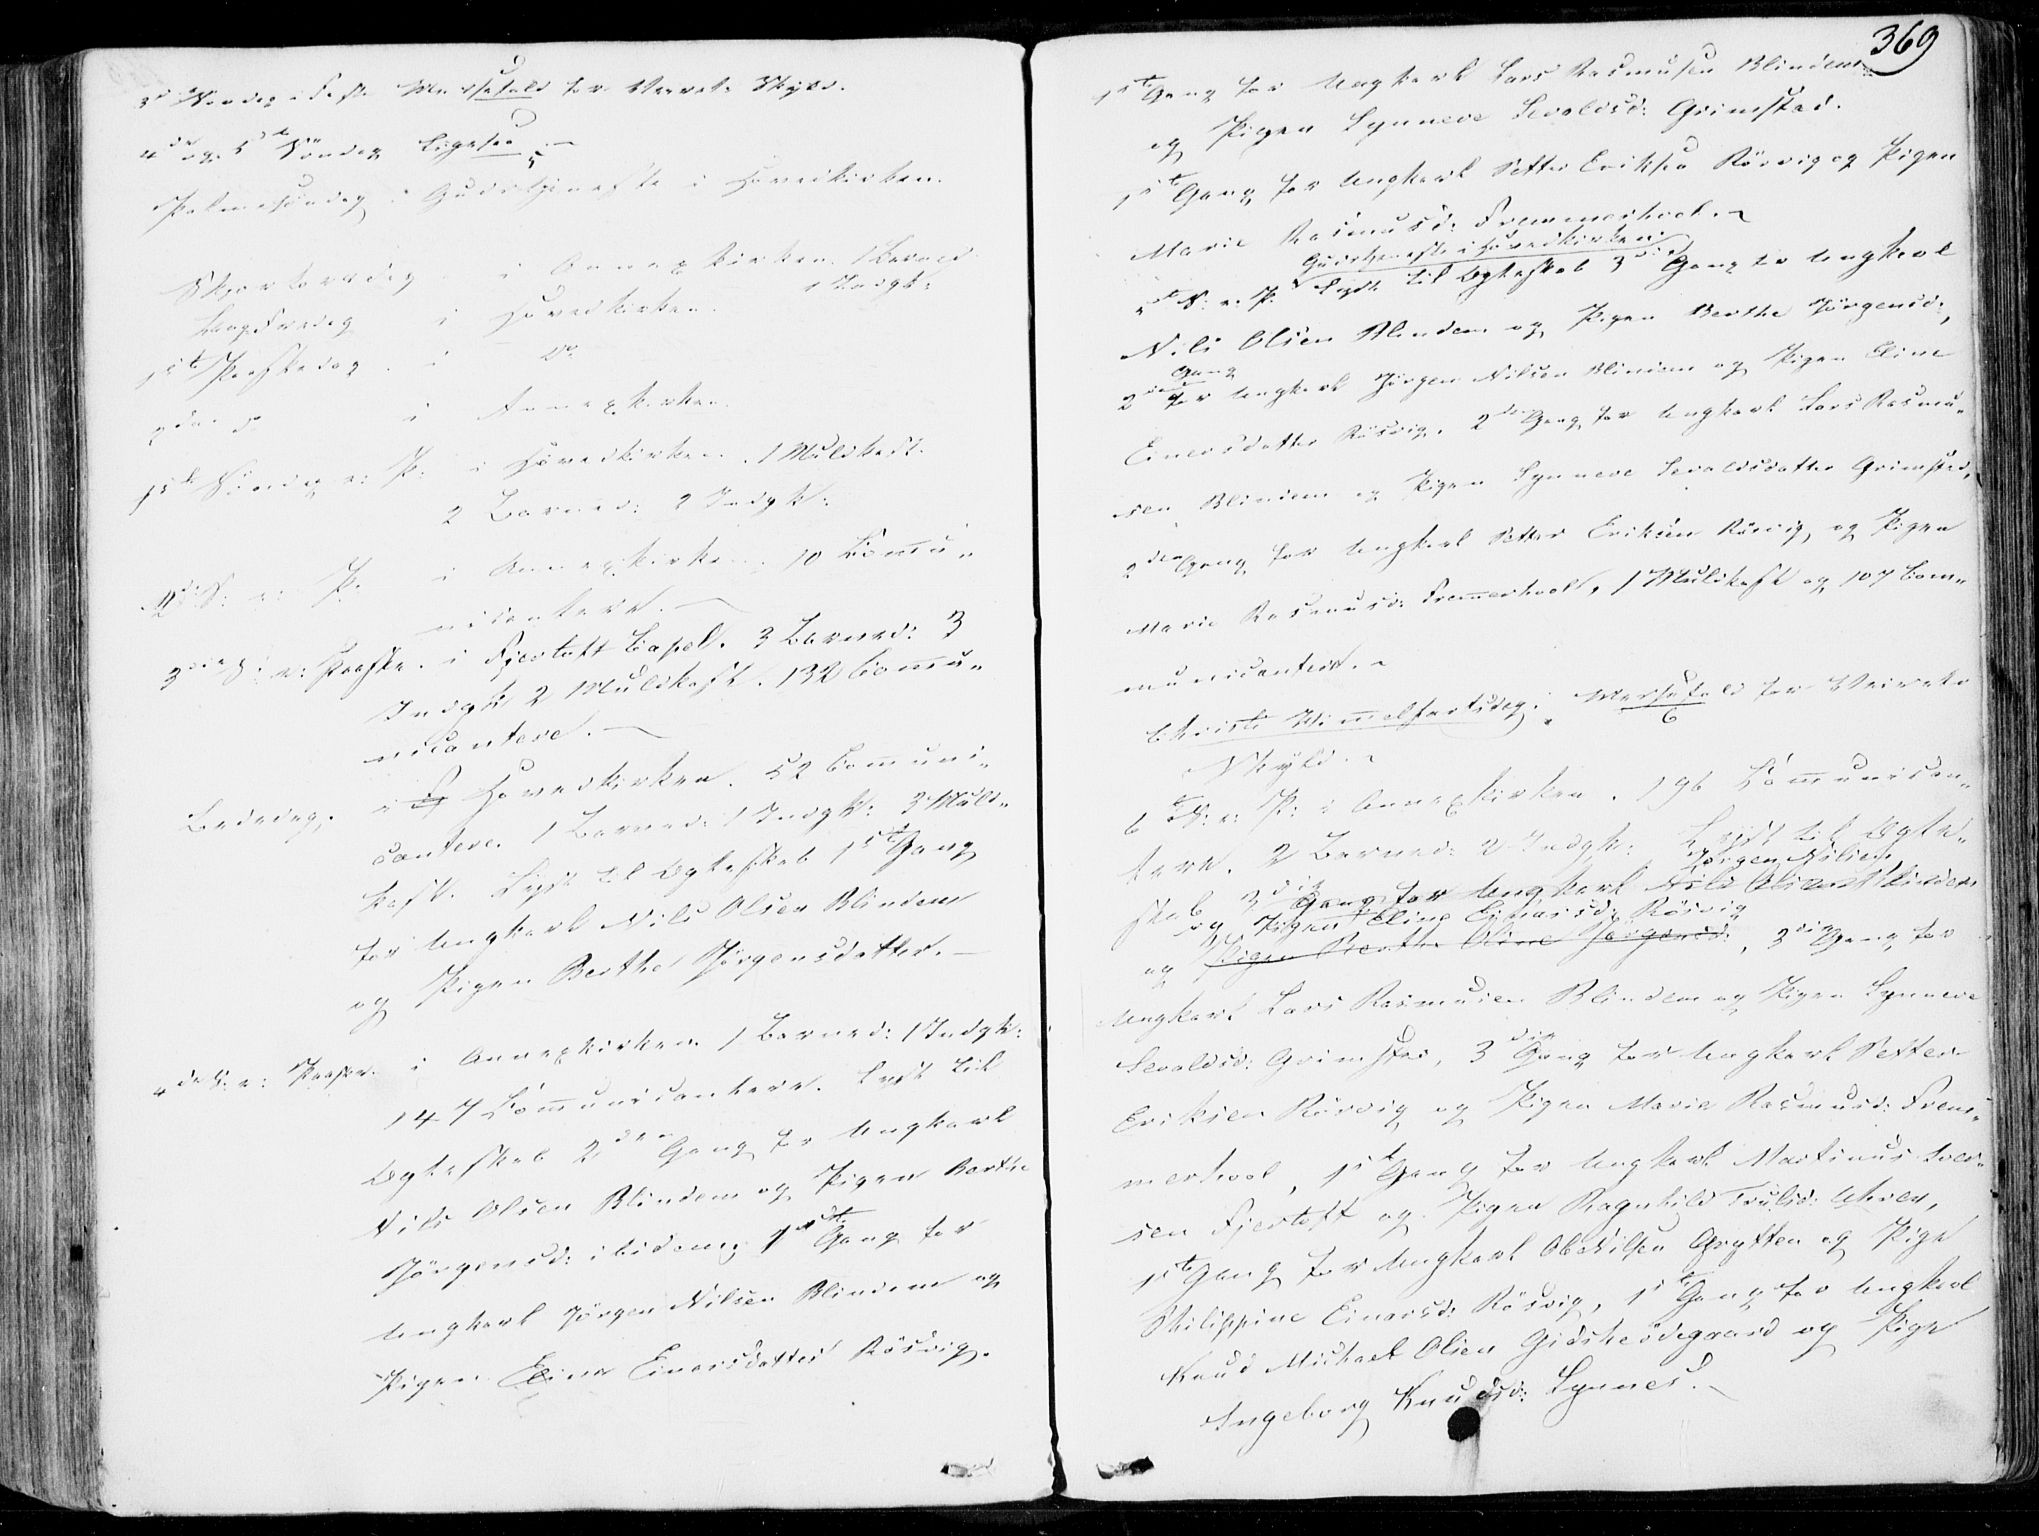 3d Søndag i Faste Messefald for Veirets Skyld.
4de og 5te Søndag ligesaa
Palmesøndag Gudstjeneste i Hovedkirken.
Skjærtorsdag i Annexkirken. 1 Barned: 1 Indgk:
Langfredag i Hovedkirken.
1ste Paaskedag i Do
2den d i Annexkirken.
1ste Søndag e: P. i Hovedkirken. 1 Muldkast.
2 Barned: 2 Indgk:
2d S: e: P. i Annexkirken. 10 Commu-
nicantere.
3die S: e: Paaske. i Fjertoft Capel. 3 Barned: 3
Indgk: 2 Muldkast. 132 Commu-
nicantere.
Bededag. i Hovedkirken. 52 Communi-
cantere. 1 Barned: 1 Indgk: 3 Muld-
kast. Lyst til Ægteskab 1ste Gang
for Ungkarl Nils Olsen Blindem
og Pigen Berthe Jørgensdatter.
4de S: e: Paaske. i Annexkirken. 1 Barned: 1 Indgk:
147 Communicantere. Lyst til
Ægteskab 2den Gang for Ungkarl
Nils Olsen Blindem og Pigen Berthe
Jörgensd: ibidem, 1ste Gang for
Ungkarl Jörgen Nilsen Blindem og
Pigen Eline Einersdatter Rösvig.
369
1ste Gang for Ungkarl Lars Rasmusen Blindem
og Pigen Synneve Sevaldsd: Grimstad.
1ste Gang for Ungkarl Petter Eriksen Rörvig og Pigen
Marie Rasmusd: Fremmerhool.
Gudstjeneste i Hovedkirken.
5te S: e: P. Lyst til Ægteskab 3die Gang for Ungkarl
Nils Olsen Blindem og Pigen Berthe Jörgensd:,
2den Gang for Ungkarl Jörgen Nilsen Blindem og Pigen Eline
Einersdatter Rösvig. 2den Gang for Ungkarl Lars Rasmu-
sen Blindem og Pigen Synneve Sevaldsdatter Grimstad,
2den Gang for Ungkarl Petter Eriksen Rörvig og Pigen
Marie Rasmusd: Fremmerhool, 1 Muldkast og 107 Com-
municantere.
Christi Himmelfartsdag. Messefald for Veirets
6
Skyld.
6te S: e: P: i Annexkirken. 196 Communican-
tere. 2 Barned: 2 Indgk: Lyst til Ægte-
Jörgen Nilsen
skab 3die Gang for Ungkarl Nils Olsen Blindem
og Pigen Eline Einarsd: Rösvig
og Pigen Berthe Oline Jørgensd:, 3die Gang for
Ungkarl Lars Rasmusen Blindem og Pigen Synneve
Sevaldsd: Grimstad, 3die Gang for Ungkarl Petter
Eriksen Rörvig og Pigen Marie Rasmusd: Frem-
merhool, 1ste Gang for Ungkarl Martinus Iver-
sen Fjertoft og Pigen Ragnhild Trulsd: Uhret,
1ste Gang for Ungkarl Ole Nilsen Grytten og Pige
Philippine Einarsd: Rösvig, 1ste Gang for Ungkarl
Knud Michael Olsen Gidskeödegaard og Pige
Ingeborg Knudsd: Synnes.